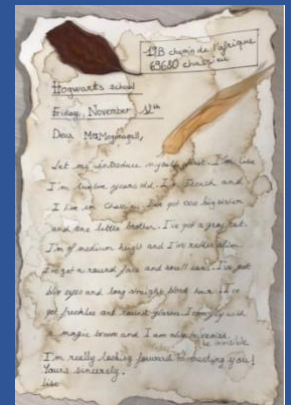 19B chemin de l'afrique
69680 chassieu
Hogwarts school
Friday, November 12th
Dear Mrs McGonagall,
Let me introduce myself first. I'm Lise
I'm twelve years old. I'm French and
I live in Chassieu. I've got one big sister
and one little brother. I've got a gray cat.
I'm of medium height and I'm rather slim.
I've got a round face and small ears. I've got
blue eyes and long straight blond hair. I've
got freckles and round glasses. I can fly with
magic broom and I am able to vanish.
be invisible
I'm really looking forward to meeting you!
Yours sincerely.
Lise